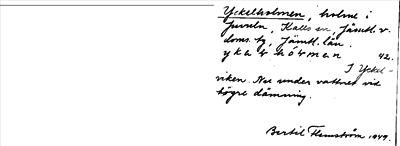 Yckelholmen, holme i
Juveln, Kalls sn, Jämtl. v.
doms. fg, Jämtl. län.
42.
I Yckel-
viken. Nu under vattnet vid
högre dämning.
Bertil Flemström 1949.